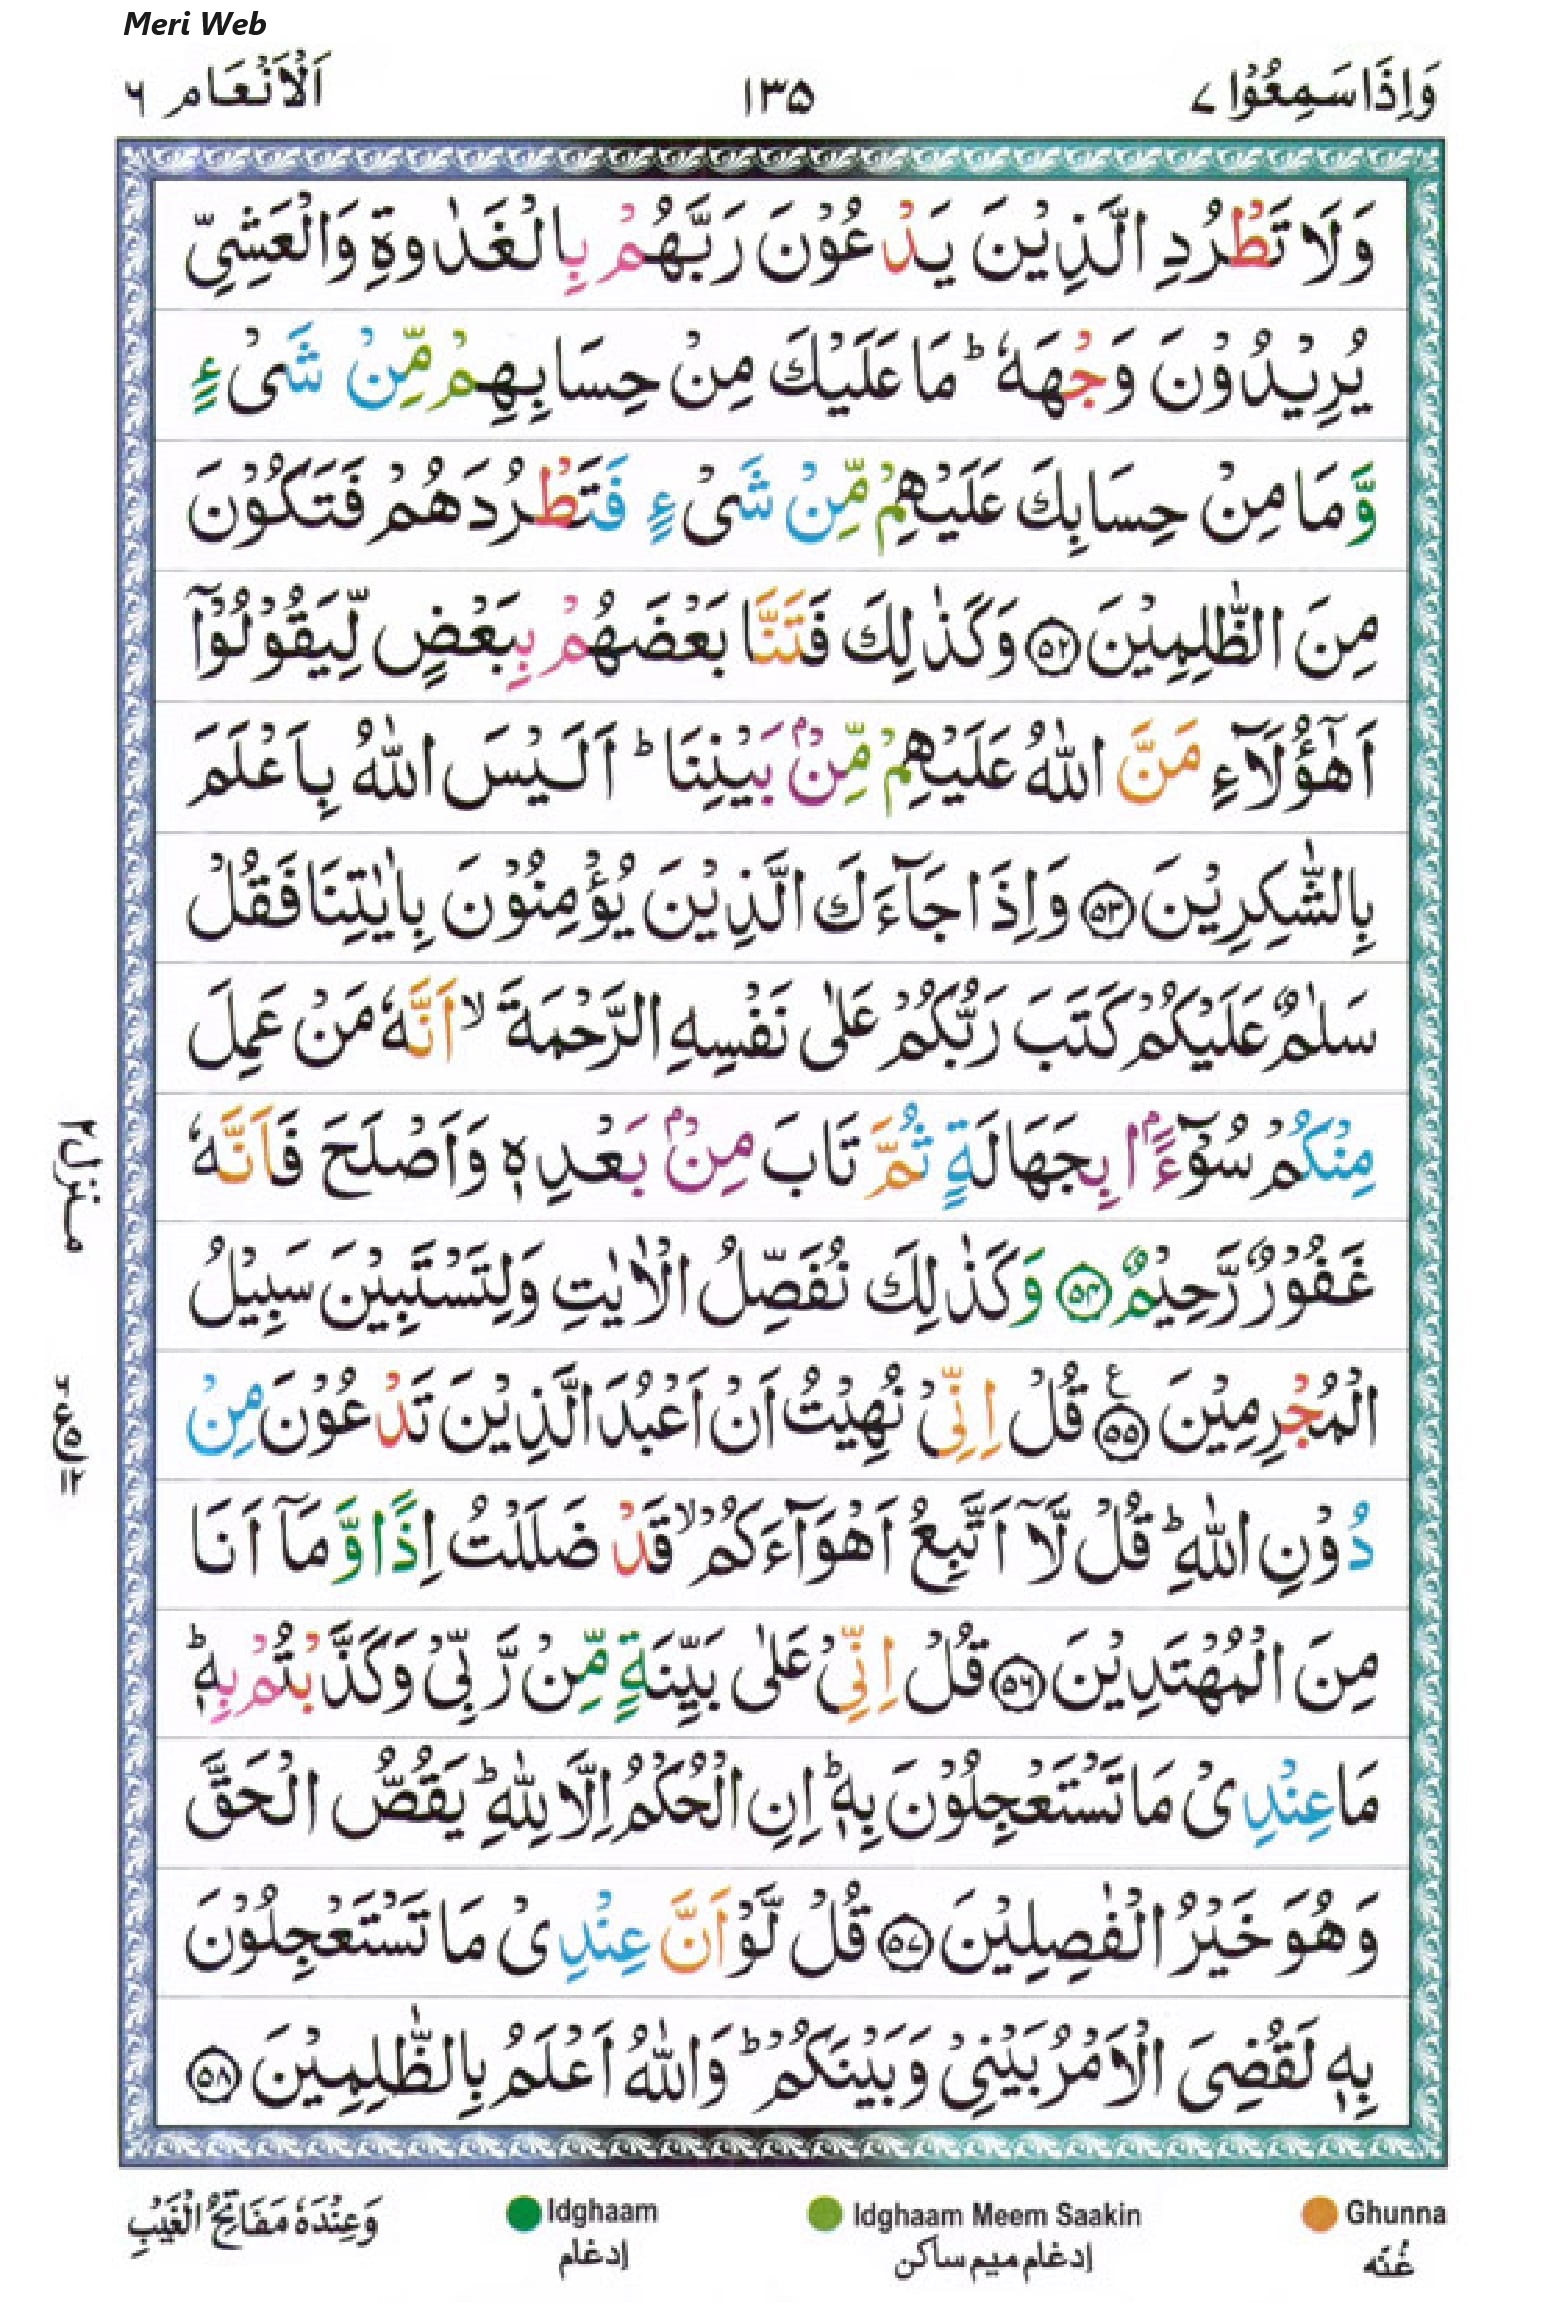 Meri Web
وَاِذَا سَمِعُوْا ٧ ١٣٥ اَلْاَنْعَام ٦
وَلَا تَطْرُدِ الَّذِيْنَ يَدْعُوْنَ رَبَّهُمْ بِالْغَدٰوةِ وَالْعَشِىِّ
يُرِيْدُوْنَ وَجْهَهٗ ؕ مَا عَلَيْكَ مِنْ حِسَابِهِمْ مِّنْ شَىْءٍ
وَّمَا مِنْ حِسَابِكَ عَلَيْهِمْ مِّنْ شَىْءٍ فَتَطْرُدَهُمْ فَتَكُوْنَ
مِنَ الظّٰلِمِيْنَ ۝٥٢ وَكَذٰلِكَ فَتَنَّا بَعْضَهُمْ بِبَعْضٍ لِّيَقُوْلُوْۤا
اَهٰۤؤُلَآءِ مَنَّ اللّٰهُ عَلَيْهِمْ مِّنْۢ بَيْنِنَا ؕ اَلَيْسَ اللّٰهُ بِاَعْلَمَ
بِالشّٰكِرِيْنَ ۝٥٣ وَاِذَا جَآءَكَ الَّذِيْنَ يُؤْمِنُوْنَ بِاٰيٰتِنَا فَقُلْ
سَلٰمٌ عَلَيْكُمْ كَتَبَ رَبُّكُمْ عَلٰى نَفْسِهِ الرَّحْمَةَ ۙ اَنَّهٗ مَنْ عَمِلَ
مِنْكُمْ سُوْٓءًۢا بِجَهَالَةٍ ثُمَّ تَابَ مِنْۢ بَعْدِهٖ وَاَصْلَحَ فَاَنَّهٗ
غَفُوْرٌ رَّحِيْمٌ ۝٥٤ وَكَذٰلِكَ نُفَصِّلُ الْاٰيٰتِ وَلِتَسْتَبِيْنَ سَبِيْلُ
الْمُجْرِمِيْنَ ۝٥٥ ع قُلْ اِنِّىْ نُهِيْتُ اَنْ اَعْبُدَ الَّذِيْنَ تَدْعُوْنَ مِنْ
دُوْنِ اللّٰهِ ؕ قُلْ لَّآ اَتَّبِعُ اَهْوَآءَكُمْ ۙ قَدْ ضَلَلْتُ اِذًا وَّمَاۤ اَنَا
مِنَ الْمُهْتَدِيْنَ ۝٥٦ قُلْ اِنِّىْ عَلٰى بَيِّنَةٍ مِّنْ رَّبِّىْ وَكَذَّبْتُمْ بِهٖ ؕ
مَا عِنْدِىْ مَا تَسْتَعْجِلُوْنَ بِهٖ ؕ اِنِ الْحُكْمُ اِلَّا لِلّٰهِ ؕ يَقُصُّ الْحَقَّ
وَهُوَ خَيْرُ الْفٰصِلِيْنَ ۝٥٧ قُلْ لَّوْ اَنَّ عِنْدِىْ مَا تَسْتَعْجِلُوْنَ
بِهٖ لَقُضِىَ الْاَمْرُ بَيْنِىْ وَبَيْنَكُمْ ؕ وَاللّٰهُ اَعْلَمُ بِالظّٰلِمِيْنَ ۝٥٨
منزل ٢
وَعِنْدَهٗ مَفَاتِحُ الْغَيْبِ
Idghaam Idghaam Meem Saakin Ghunna
ادغام ادغام میم ساکن غُنّه